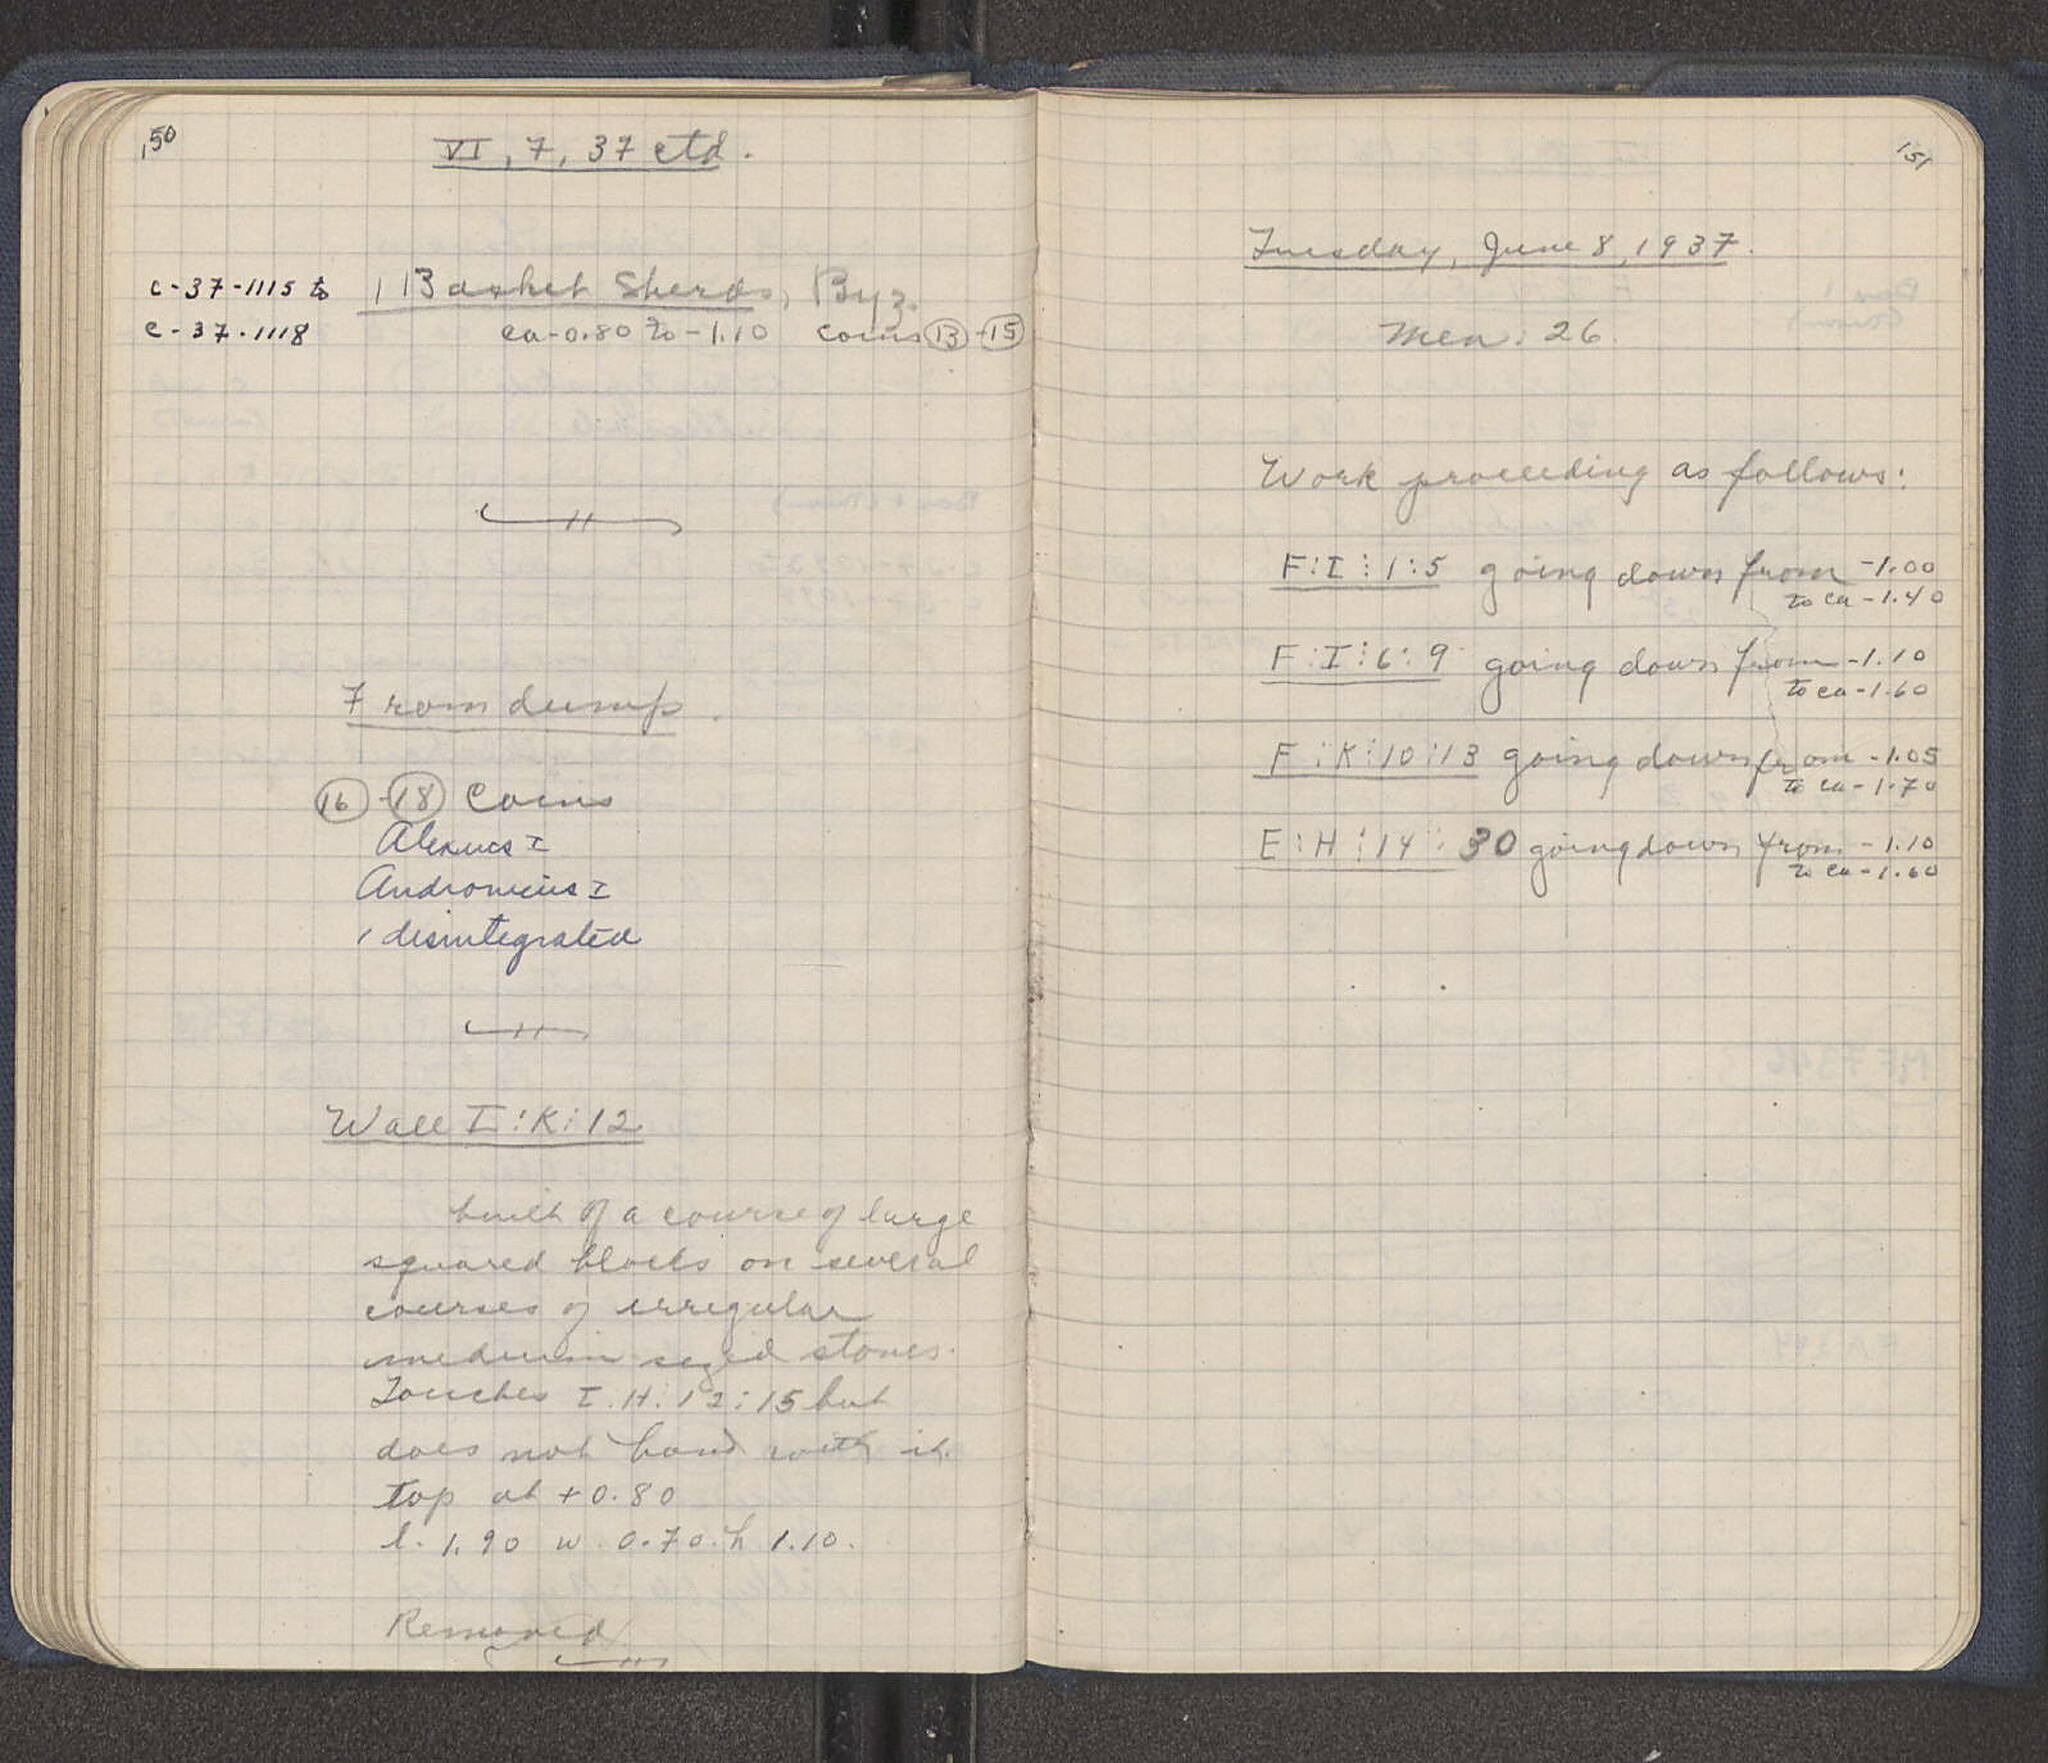 150
VI, 7, 37 ctd.
c-37-1115 to 1 Basket Sherds, Byz.
c-37-1118 ca -0.80 to -1.10 coins 13 - 15
From dump.
16 - 18 Coins
Alexius I
Andronicus I
1 disintegrated
Wall I:K:12
built of a course of large
squared blocks on several
courses of irregular
medium sized stones.
Touches I.H:12:15 but
does not bond with it.
top at +0.80
l. 1.90 w. 0.70. h 1.10.
Removed
151
Tuesday, June 8, 1937.
Men: 26.
Work proceeding as follows:
F:I:1:5 going down from -1.00
to ca -1.40
F:I:6:9 going down from -1.10
to ca -1.60
F:K:10:13 going down from -1.05
to ca -1.70
E:H:14:30 going down from -1.10
to ca -1.60